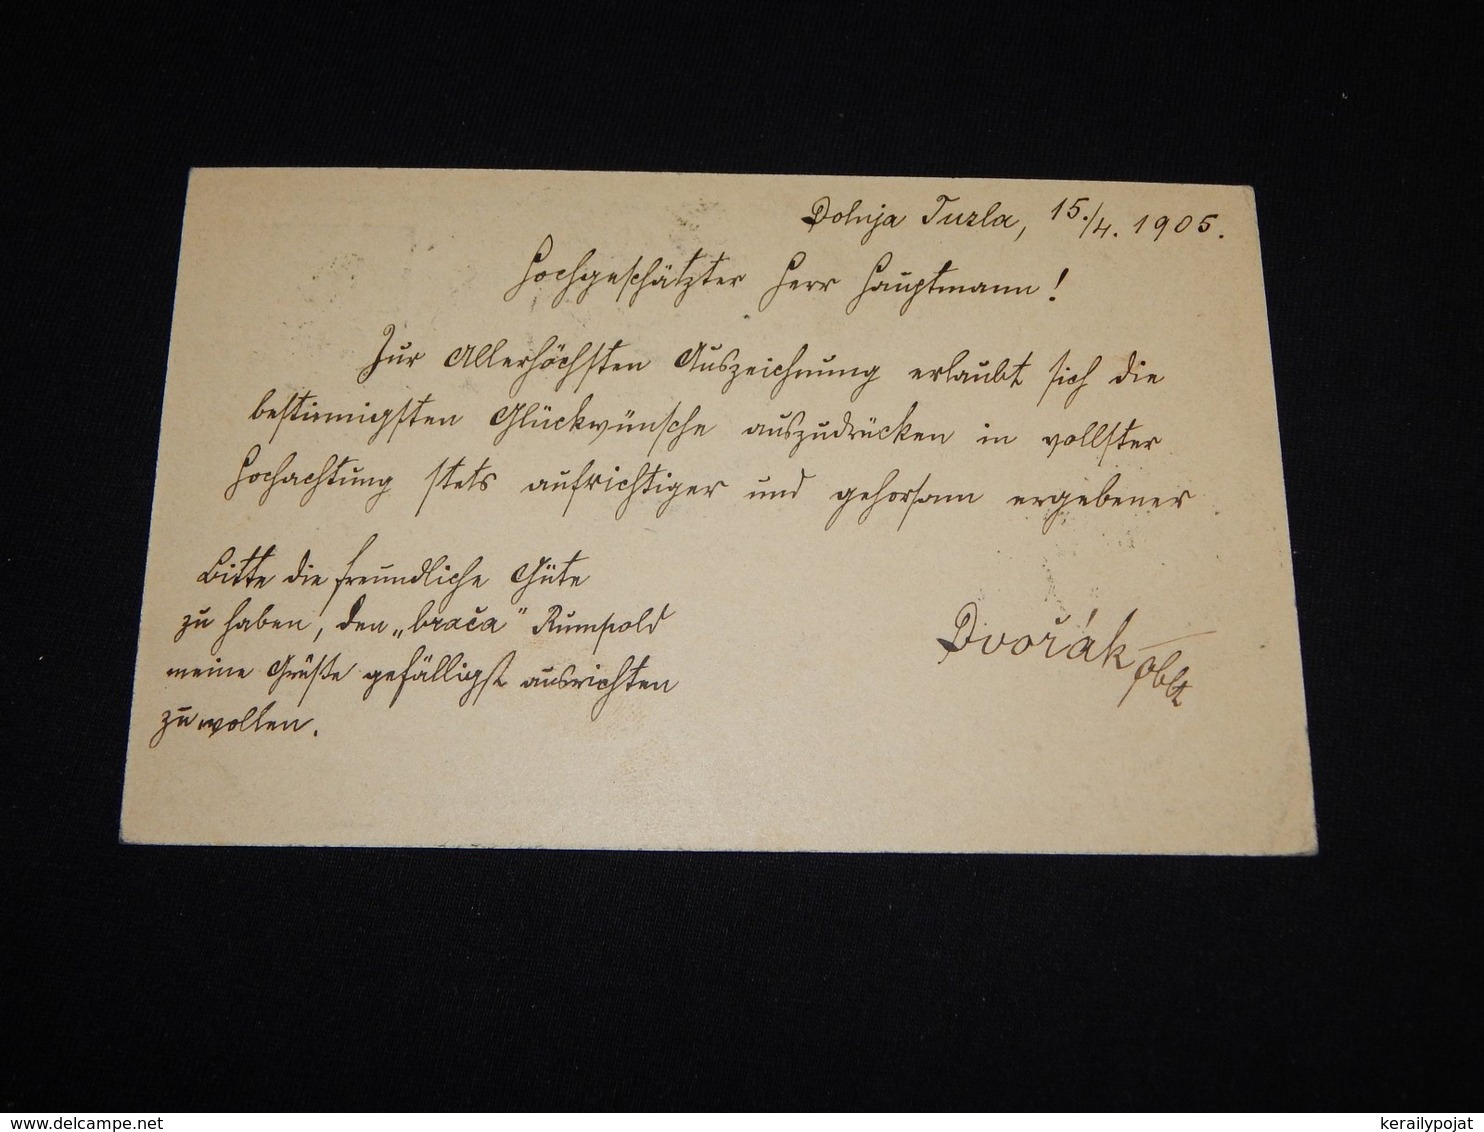 Dolnja Tuzla, 15./4. 1905.
Hochgeschätzter Herr Hauptmann!
Zur Allerhöchsten Auszeichnung erlaubt sich die
bestinnigsten Glückwünsche auszudrücken in vollster
Hochachtung stets aufrichtiger und gehorsam ergebener
Dvořák Oblt
Bitte die freundliche Güte
zu haben, den „braća" Rumpold
meine Grüße gefälligst ausrichten
zu wollen.
kerailypojat